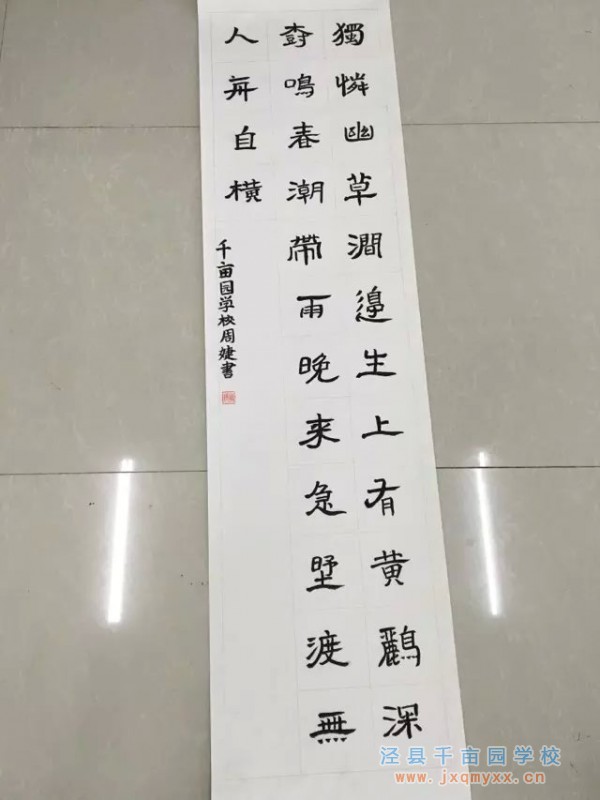 獨憐幽草澗邉生上有黄鸝深
樹鳴春潮帶雨晚来急野渡無
人舟自橫
千亩园学校周婕書
泾县千亩园学校
www.jxqmyxx.cn